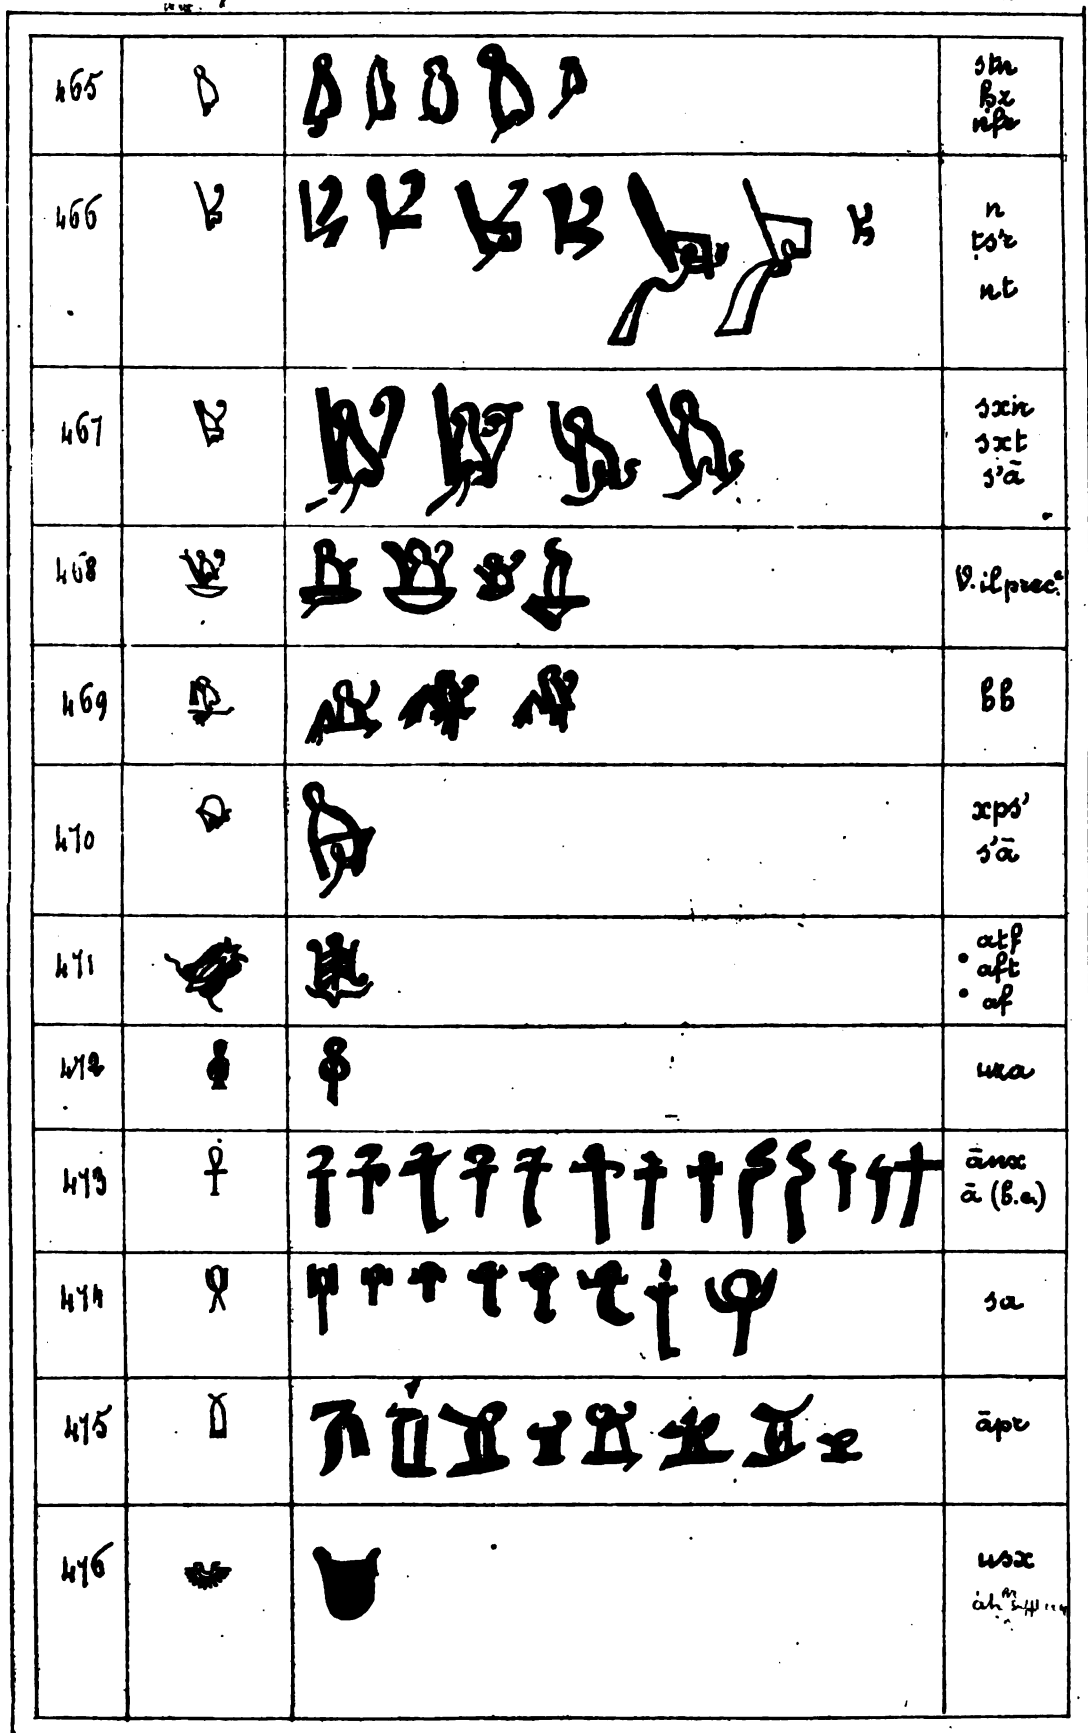 465
stn
ḥz
nfr
466
n
ṭs'r
nt
467
sxn
sxt
s'ā
468
V. il prec.e
469
bb
470
xps'
s'ā
471
atf
• aft
• af
472
ura
473
ānx
ā (b.e.)
474
sa
475
āpr
476
usx